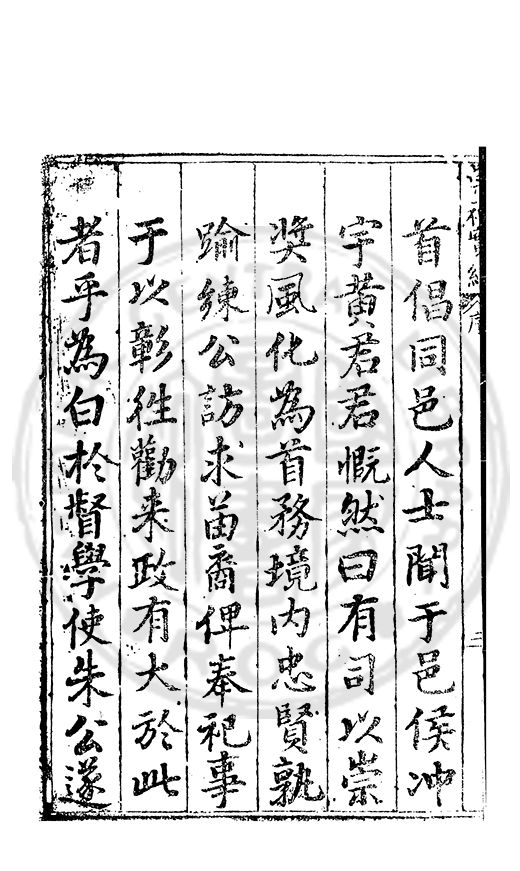 首倡同邑人士聞于邑侯冲
宇黄君君慨然曰有司以崇
奨風化為首務境内忠賢孰
踰練公訪求苗裔俾奉祀事
于以彰徃勸来政有大於此
者乎為白於督學使朱公遂